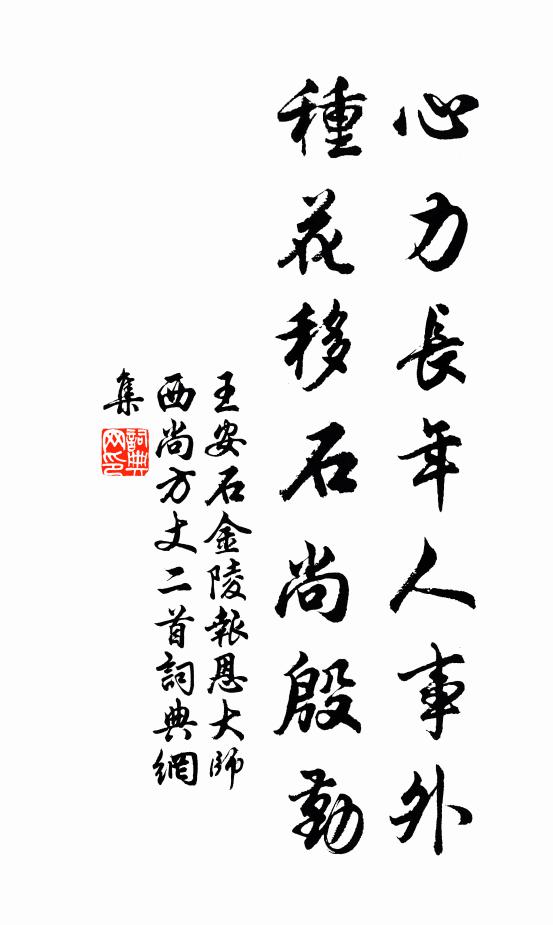 心力長年人事外
種花移石尚殷勤
王安石金陵報恩大師
西尚方丈二首詞典網
集
詞典網印